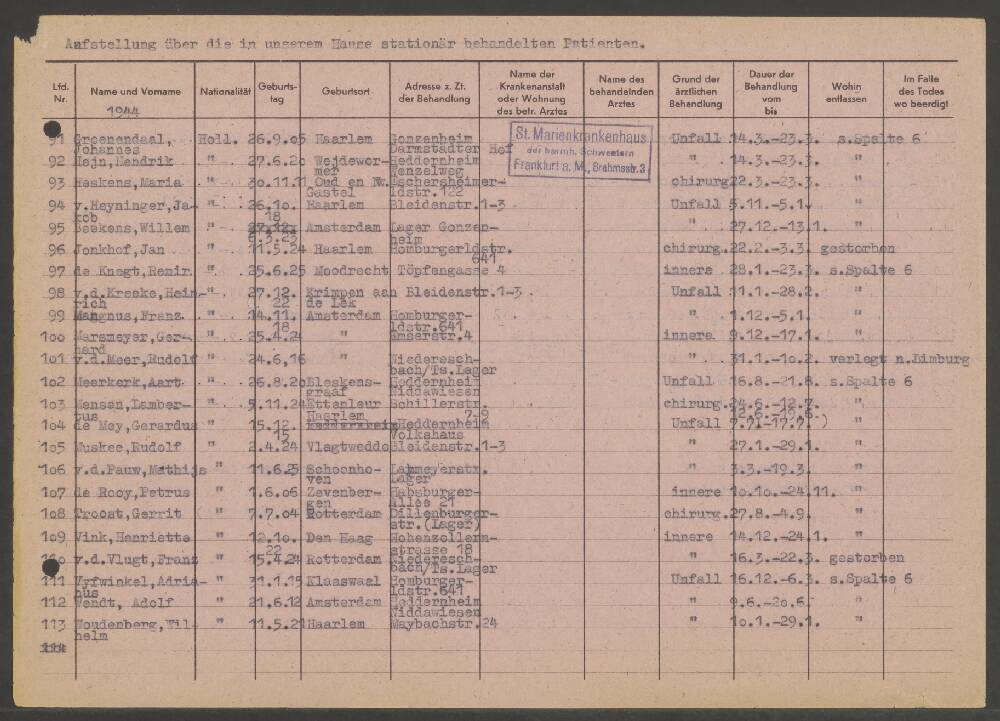 Aufstellung über die in unserem Hause stationär behandelten Patienten.
Lfd. Nr. Name und Vorname Nationalität Geburtstag Geburtsort Adresse z. Zt. der Behandlung Name der Krankenanstalt oder Wohnung des betr. Arztes Name des behandelnden Arztes Grund der ärztlichen Behandlung Dauer der Behandlung vom bis Wohin entlassen Im Falle des Todes wo beerdigt
1944
St. Marienkrankenhaus
der barmh. Schwestern
Frankfurt a. M., Brahmsstr. 3
91 Groenendaal, Holl. 26.9.05 Haarlem Gonzenheim Unfall 14.3.-23.3. s.Spalte 6
Johannes Darmstädter Hof
92 Hejn, Hendrik " 27.6.20 Wejdewor- Heddernheim " 14.3.-23.3. "
mer Wenzelweg
93 Heskens, Maria " 30.11.11 Oud en Nw. Eschersheimer- chirurg 22.3.-23.3. "
Gastel ldstr.122
94 v.Heyninger, Ja- " 26.10. Haarlem Bleidenstr.1-3 Unfall 5.11.-5.1. "
kob 18
95 Beekens, Willem " 27.12. Amsterdam Lager Gonzen- " 27.12.-13.1. "
6.3.23 heim
96 Jonkhof, Jan " 11.5.24 Haarlem Homburgerldstr. chirurg. 22.2.-3.3. gestorben
641
97 de Knegt, Remir. " 25.6.25 Moodrecht Töpfengasse 4 innere 28.1.-23.3. s.Spalte 6
98 v.d.Kreeke, Hein- " 27.12. Krimpen aan Bleidenstr.1-3 Unfall 11.1.-28.2. "
rich 22 de Lek
99 Mangnus, Franz " 14.11. Amsterdam Homburger- " 1.12.-5.1. "
18 ldstr.641
100 Marsmeyer, Ger- " 25.4.24 " Emserstr.4 innere 9.12.-17.1. "
hard
101 v.d.Meer, Rudolf " 24.6.16 " Niederesch- " 31.1.-10.2. verlegt n.Limburg
bach/Ts.Lager
102 Meerkerk, Aart " 26.8.20 Bleskens- Heddernheim Unfall 16.8.-21.8. s.Spalte 6
graaf Niddawiesen
103 Mensen, Lamber- " 5.11.24 Ettenleur Schillerstr. chirurg. 24.6.-12.7. "
tus Haarlem 7-9
104 de Mey, Gerardus " 15.12. Heddernheim Unfall 7.7.-17.7. "
15 Volkshaus
105 Muskee, Rudolf " 2.4.24 Vlagtwedde Bleidenstr.1-3 " 27.1.-29.1. "
106 v.d.Pauw, Mathijs " 11.6.25 Schoonho- " 3.3.-19.3. "
ven Lager
107 de Rooy, Petrus " 1.6.06 Zevenber- Habsburger- innere 10.10.-24.11. "
gen Allee 21
108 Troost, Gerrit " 7.7.04 Rotterdam Dillenburger- chirurg. 27.8.-4.9. "
str.(Lager)
109 Vink, Henriette " 12.10. Den Haag Hohenzollern- innere 14.12.-24.1. "
22 strasse 18
v.d.Vlugt, Franz " 15.4.24 Rotterdam Niederesch- " 16.3.-22.3. gestorben
bach/Ts.Lager
111 Vyfwinkel, Adria- " 31.1.15 Klaaswaal Homburger- Unfall 16.12.-6.3. s.Spalte 6
nus ldstr.641
112 Wendt, Adolf " 21.6.12 Amsterdam Heddernheim " 9.6.-20.6. "
Niddawiesen
113 Woudenberg, Wil- " 11.5.21 Haarlem Maybachstr.24 " 10.1.-29.1. "
helm
114